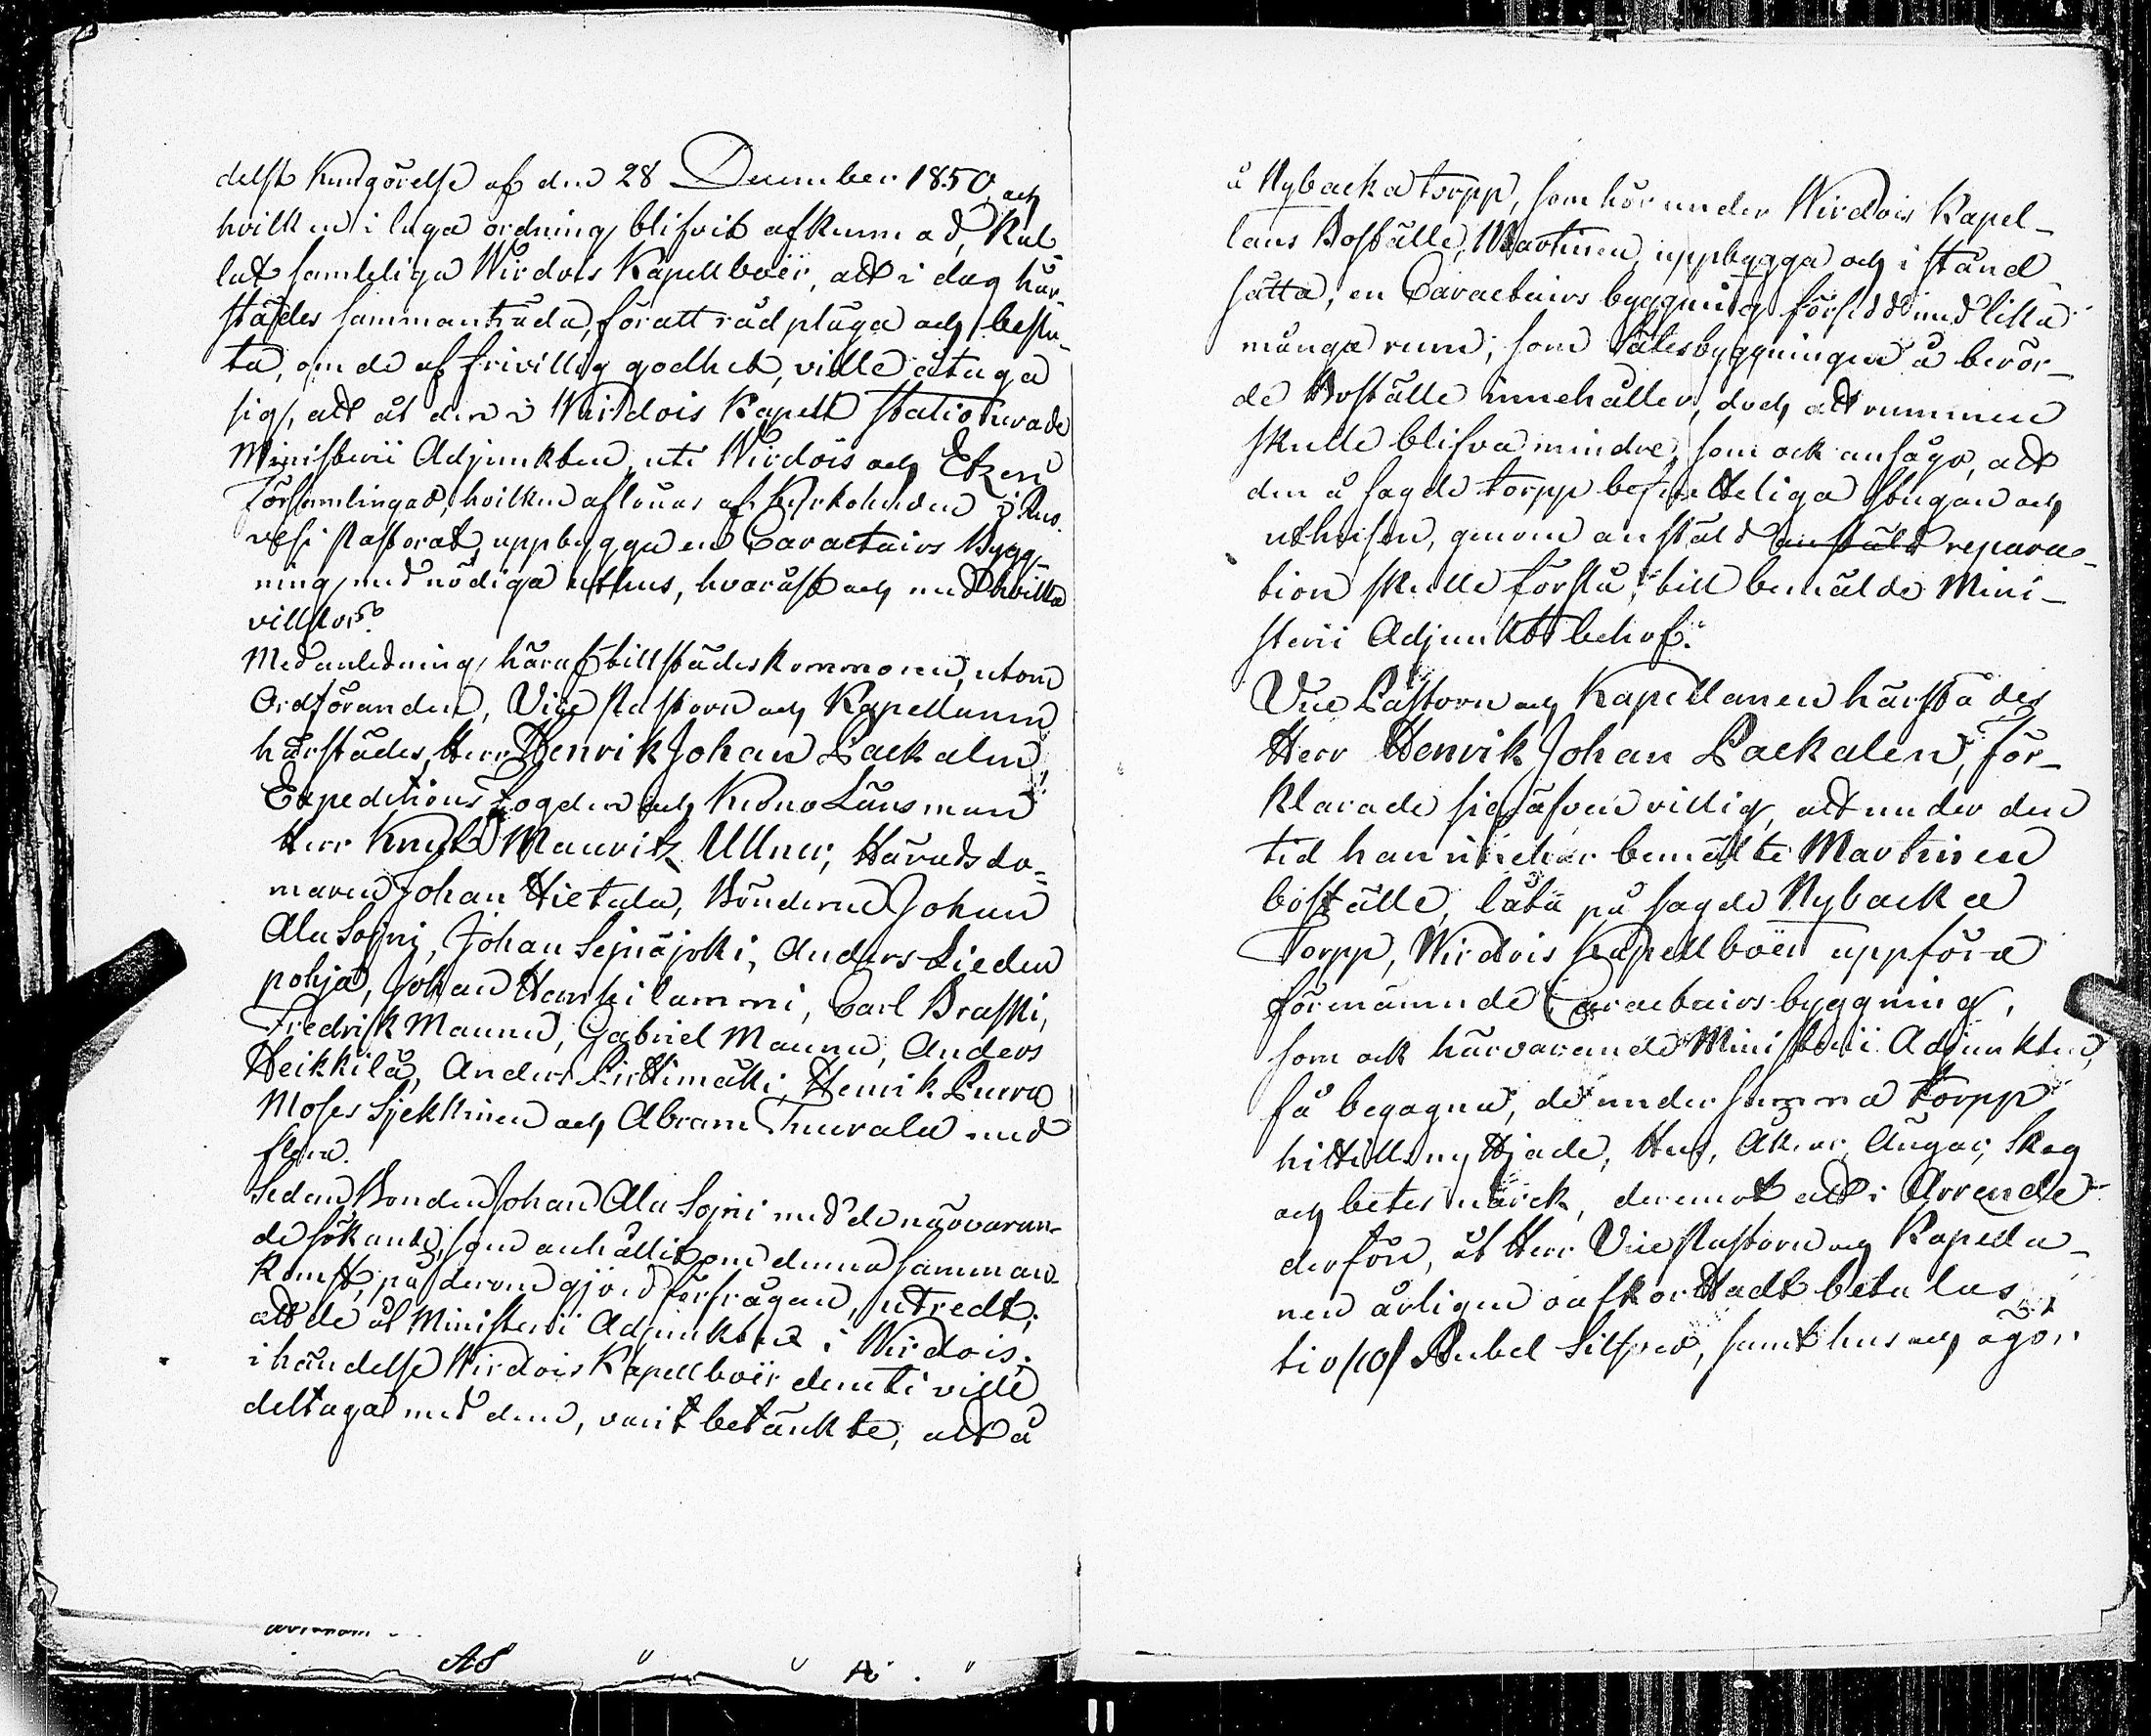 delst Kungörelse af den 28 December 1850, och
hvilken i laga ordning blifvit afkunnad, kal
lat samteliga Wirdois Kapellboër, att i dag här-
städes sammanträda, för att rådpläga och beslu-
ta, om de af frivillig godhet, ville åtaga
sig, att åt den i Wirdois Kapell stationerade
Ministerii Adjunkten, uti Wirdois och Etzeri
Församlingar, hvilken aflönas af Kyrkoherden i Ruo-
vesi Pastorat, uppbygga en Caractairs Bygg-
ning med nödiga uthus, hvaräst och med hvilka
villkor?
Med anledning häraf tillstädeskommo nu, utom
Ordföranden, Vice Pastorn och Kapellanen
härstädes, Herr Henrik Johan Packalen,
Expeditions Fogden och Krono Länsman
Herr Knut Mauritz Ullner, Häradsdo-
maren Johan Hietala, Bönderne Johan
Ala Soini, Johan Seinäjoki, Anders Lieden
pohja, Johan Hauhilammi, Carl Braski,
Fredrik Maunu, Gabriel Maunu, Anders
Heikkilä, Anders Pirttimäki, Henrik Purra
Moses Sjekkinen och Abram Tuurala med
flera.
Sedan Bonden Johan Ala Soini med de närvaran-
de sökande, som anhållit om denna samman-
komst, på derom gjord förfrågan, utredt,
att de åt Ministerii Adjunkten i Wirdois,
i händelse Wirdois Kapellboër demti ville
deltaga med dem, varit betänkte, att å
å Nybacka torpp, som hör under Wirdois Kapel-
lans Boställe, Martinen, uppbygga och i stånd
sätta, en Caractairs byggning försedd med lika
många rum, som Sätesbyggningen å berör-
de Boställe innehåller, doch att rummen
skulle blifva mindre, som ock ansågo, att
den å sagde torpp befintteliga stugan och
uthusen, genom anstäld anstäld repara-
tion skulle förslå, till bemälde Mini-
sterii Adjunkts behof.
Vice Pastorn och Kapellanen härstädes
Herr Henrik Johan Packalen, för-
klarade sig äfven villig, att under den
tid han innehar bemälte Martinen
boställe, låta på sagde Nybacka
Torpp, Wirdois Kapellboër uppföra
förenämnde Caractairs byggning,
som ock härvarande Ministerii Adjunkten,
få begagna, de under samma torpp
hittills nyttjade, Hus, Åker, Ängar, Skog
och betes märck, deremot att i Arrende
derför, åt Herr Vice Pastorn och Kapella-
nen årligen oafkorttadt betalas,
tio /10/ Rubel Silfver, samt hus och ägor